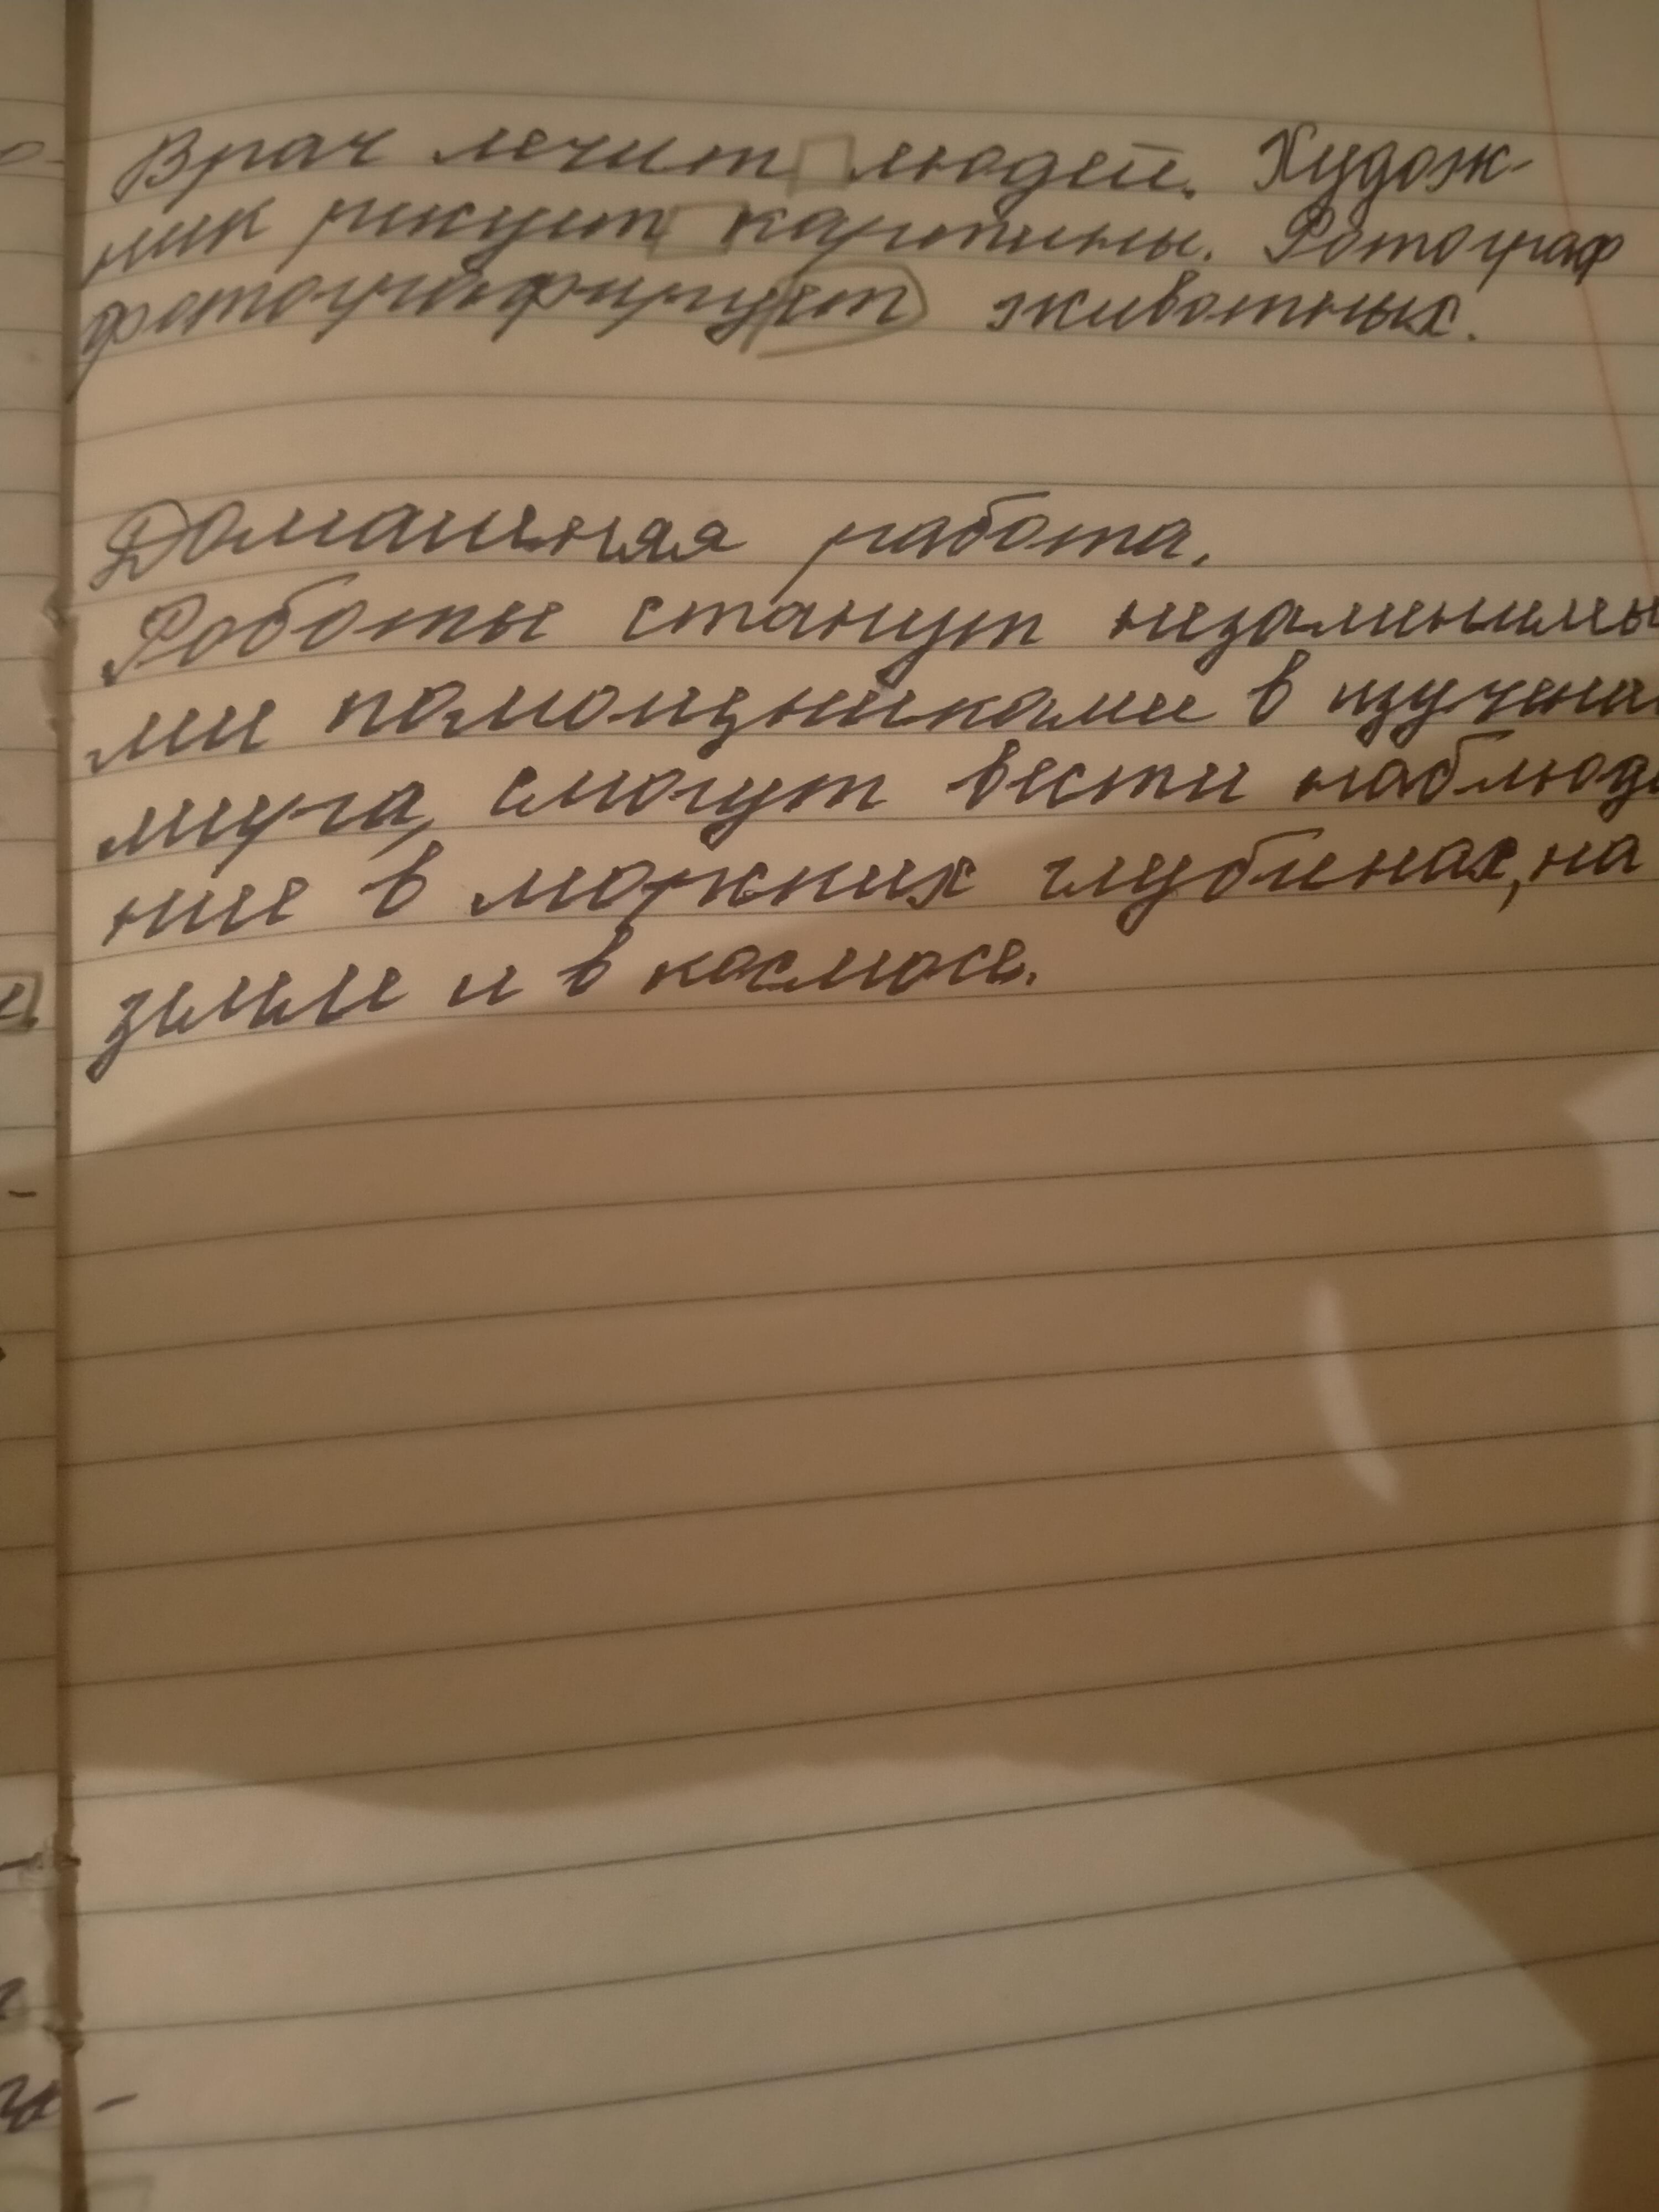 Врач лечит людей. Худож-
ник рисует картины. Фотограф
фотографирует животных.
Домашняя работа.
Роботы станут незаменимы
ми помощниками в изучени
мира, смогут вести наблюде
ние в морских глубинах, на
земле и в космосе.